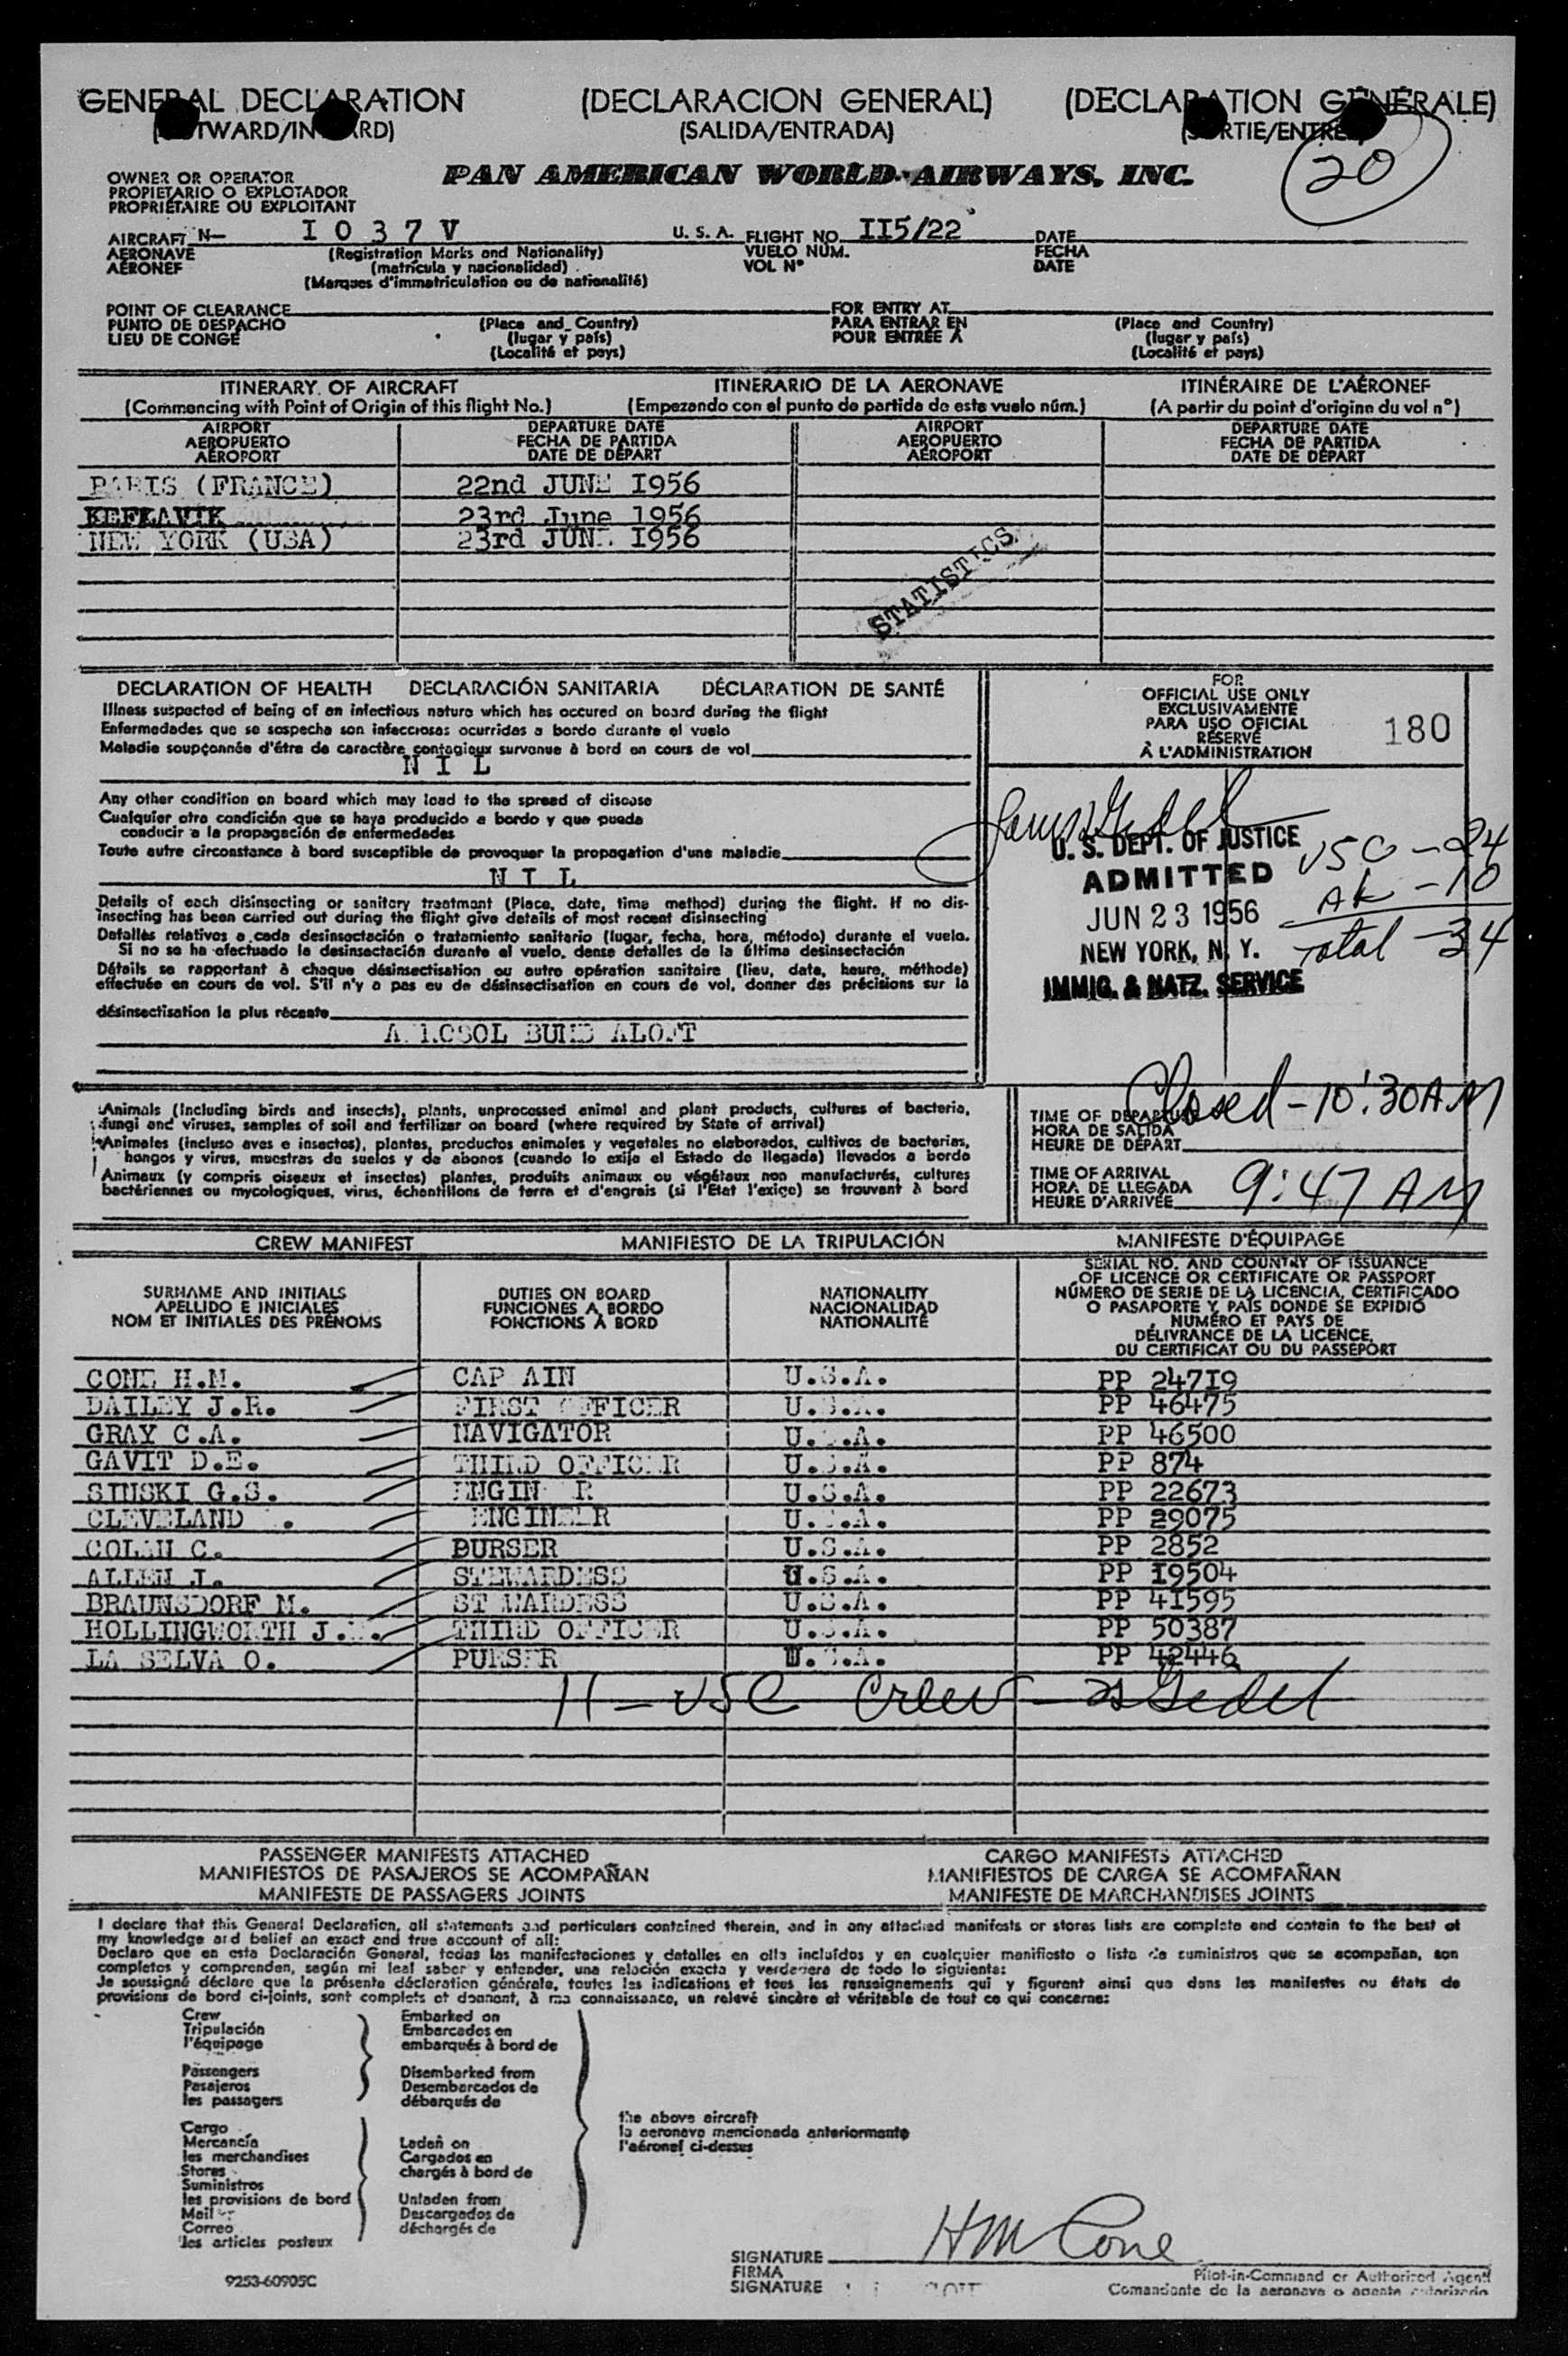 GENERAL DECLARATION (DECLARACION GENERAL) (DECLARATION GÉNÉRALE)
(SALIDA/ENTRADA)
20
OWNER OR OPERATOR
PROPIETARIO O EXPLOTADOR
PROPRIÉTAIRE OU EXPLOITANT
PAN AMERICAN WORLD AIRWAYS, INC.
AIRCRAFT N- I 0 3 7 V U. S. A. FLIGHT NO. II5/22 DATE
AERONAVE (Registration Marks and Nationality) VUELO NÚM. FECHA
AÉRONEF (matrícula y nacionalidad) VOL Nº DATE
(Marques d'immatriculation ou de nationalité)
POINT OF CLEARANCE FOR ENTRY AT
PUNTO DE DESPACHO (Place and Country) PARA ENTRAR EN (Place and Country)
LIEU DE CONGÉ (lugar y país) POUR ENTRÉE À (lugar y país)
(Localité et pays) (Localité et pays)
ITINERARY OF AIRCRAFT ITINERARIO DE LA AERONAVE ITINÉRAIRE DE L'AÉRONEF
(Commencing with Point of Origin of this flight No.) (Empezando con el punto de partida de este vuelo núm.) (A partir du point d'origine du vol nº)
AIRPORT DEPARTURE DATE AIRPORT DEPARTURE DATE
AEROPUERTO FECHA DE PARTIDA AEROPUERTO FECHA DE PARTIDA
AÉROPORT DATE DE DÉPART AÉROPORT DATE DE DÉPART
PARIS (FRANCE) 22nd JUNE I956
KEFLAVIK 23rd June 1956
NEW YORK (USA) 23rd JUNE I956
STATISTICS
DECLARATION OF HEALTH DECLARACIÓN SANITARIA DÉCLARATION DE SANTÉ
Illness suspected of being of an infectious nature which has occured on board during the flight
Enfermedades que se sospecha son infecciosas ocurridas a bordo durante el vuelo
Maladie soupçonnée d'être de caractère contagieux survenue à bord en cours de vol
N I L
Any other condition on board which may lead to the spread of disease
Cualquier otra condición que se haya producido a bordo y que pueda
conducir a la propagación de enfermedades
Toute autre circonstance à bord susceptible de provoquer la propagation d'une maladie
N I L
Details of each disinsecting or sanitary treatment (Place, date, time method) during the flight. If no dis-
insecting has been carried out during the flight give details of most recent disinsecting
Detalles relativos a cada desinsectación o tratamiento sanitario (lugar, fecha, hora, método) durante el vuelo.
Si no se ha efectuado la desinsectación durante el vuelo, dense detalles de la última desinsectación
Détails se rapportant à chaque désinsectisation ou autre opération sanitaire (lieu, date, heure, méthode)
effectuée en cours de vol. S'il n'y a pas eu de désinsectisation en cours de vol, donner des précisions sur la
désinsectisation la plus récente
ALOFT
FOR
OFFICIAL USE ONLY
EXCLUSIVAMENTE
PARA USO OFICIAL
RÉSERVÉ
À L'ADMINISTRATION
180
U. S. DEPT. OF JUSTICE
ADMITTED
JUN 23 1956
NEW YORK, N. Y.
IMMIG. & NATZ. SERVICE
USC - 24
AK - 10
Total - 34
Closed - 10:30 AM
Animals (Including birds and insects), plants, unprocessed animal and plant products, cultures of bacteria,
fungi and viruses, samples of soil and fertilizer on board (where required by State of arrival)
Animales (incluso aves e insectos), plantas, productos animales y vegetales no elaborados, cultivos de bacterias,
hongos y virus, muestras de suelos y de abonos (cuando lo exija el Estado de llegada) llevados a bordo
Animaux (y compris oiseaux et insectes) plantes, produits animaux ou végétaux non manufacturés, cultures
bactériennes ou mycologiques, virus, échantillons de terre et d'engrais (si l'État l'exige) se trouvant à bord
TIME OF DEPARTURE
HORA DE SALIDA
HEURE DE DÉPART
TIME OF ARRIVAL
HORA DE LLEGADA
HEURE D'ARRIVÉE
9:47 AM
CREW MANIFEST MANIFIESTO DE LA TRIPULACIÓN MANIFESTE D'ÉQUIPAGE
SURNAME AND INITIALS
APELLIDO E INICIALES
NOM ET INITIALES DES PRÉNOMS
DUTIES ON BOARD
FUNCIONES A BORDO
FONCTIONS À BORD
NATIONALITY
NACIONALIDAD
NATIONALITÉ
SERIAL NO. AND COUNTRY OF ISSUANCE
OF LICENCE OR CERTIFICATE OR PASSPORT
NÚMERO DE SERIE DE LA LICENCIA, CERTIFICADO
O PASAPORTE Y PAÍS DONDE SE EXPIDIÓ
NUMÉRO ET PAYS DE
DÉLIVRANCE DE LA LICENCE,
DU CERTIFICAT OU DU PASSEPORT
CONE H.M. CAPTAIN U.S.A. PP 247I9
DAILEY J.R. FIRST OFFICER U.S.A. PP 46475
GRAY C.A. NAVIGATOR U.S.A. PP 46500
GAVIT D.E. THIRD OFFICER U.S.A. PP 874
SINSKI G.S. ENGINEER U.S.A. PP 22673
CLEVELAND ENGINEER U.S.A. PP 29075
C. BURSER U.S.A. PP 2852
ALLEN STEWARDESS U.S.A. PP I9504
BRAUNSDORF M. STEWARDESS U.S.A. PP 4I595
HOLLINGWORTH J. THIRD OFFICER U.S.A. PP 50387
LA SELVA O. PURSER U.S.A. PP 42446
11 - USC Crew
PASSENGER MANIFESTS ATTACHED CARGO MANIFESTS ATTACHED
MANIFIESTOS DE PASAJEROS SE ACOMPAÑAN MANIFIESTOS DE CARGA SE ACOMPAÑAN
MANIFESTE DE PASSAGERS JOINTS MANIFESTE DE MARCHANDISES JOINTS
I declare that this General Declaration, all statements and particulars contained therein, and in any attached manifests or stores lists are complete and contain to the best of
my knowledge and belief an exact and true account of all:
Declaro que en esta Declaración General, todas las manifestaciones y detalles en ella incluídos y en cualquier manifiesto o lista de suministros que se acompañan, son
completos y comprenden, según mi leal saber y entender, una relación exacta y verdadera de todo lo siguiente:
Je soussigné déclare que la présente déclaration générale, toutes les indications et tous les renseignements qui y figurent ainsi que dans les manifestes ou états de
provisions de bord ci-joints, sont complets et donnent, à ma connaissance, un relevé sincère et véritable de tout ce qui concerne:
Crew
Tripulación
l'équipage
Passengers
Pasajeros
les passagers
Cargo
Mercancía
les merchandises
Stores
Suministros
les provisions de bord
Mail
Correo
les articles postaux
Embarked on
Embarcados en
embarqués à bord de
Disembarked from
Desembarcados de
débarqués de
Laden on
Cargados en
chargés à bord de
Unladen from
Descargados de
déchargés de
the above aircraft
la aeronave mencionada anteriormente
l'aéronef ci-dessus
HM Cone
SIGNATURE
FIRMA
SIGNATURE
Pilot-in-Command or Authorized Agent
Comandante de la aeronave o agente autorizado
9253-60905C